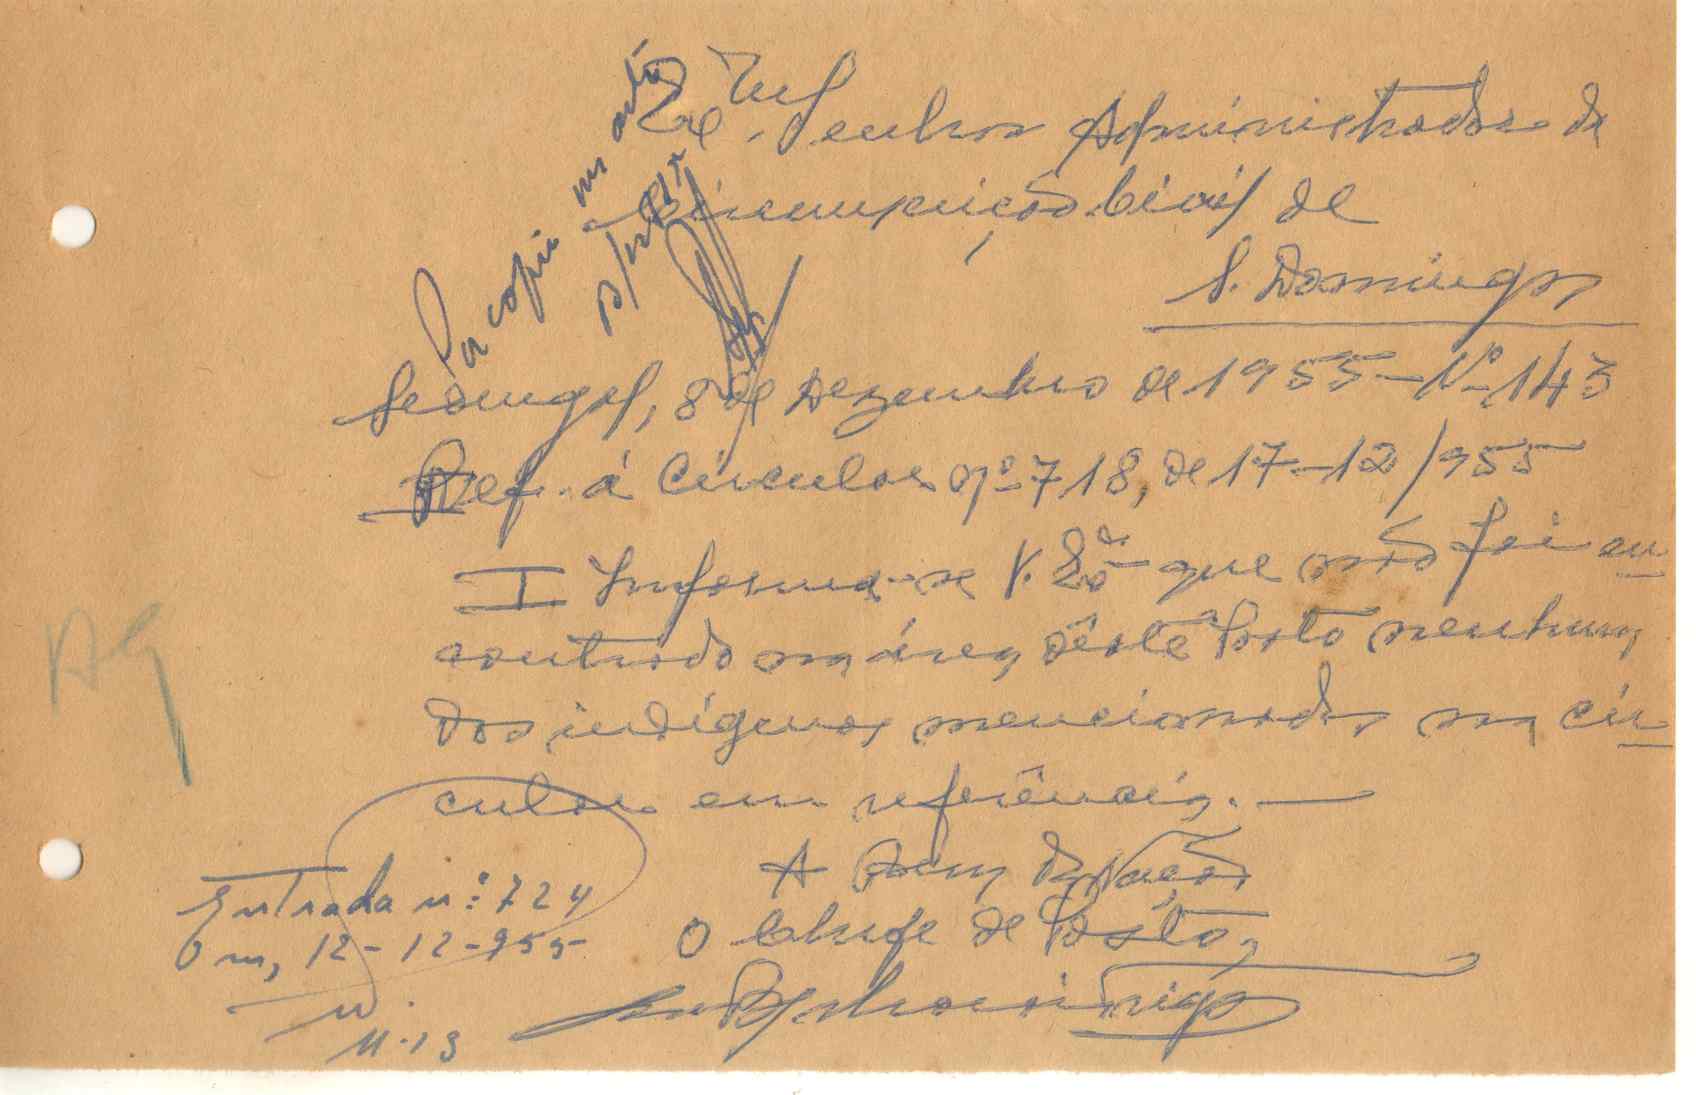 Exmº. Senhor Administrador da
Circunscrição Civil de
S. Domingos
Sedengal, 8 de Dezembro de 1955 - Nº-143
Ref. á Circular nº-718, de 17-12/955
I Informa-se V. Exª que não foi en-
contrado na área dêste Posto nenhum
dos indígenas mencionados na cir-
cular em referência.
A Bem da Nação
O Chefe de Pôsto,
Entrada nº: 724
Em, 12-12-955
AG